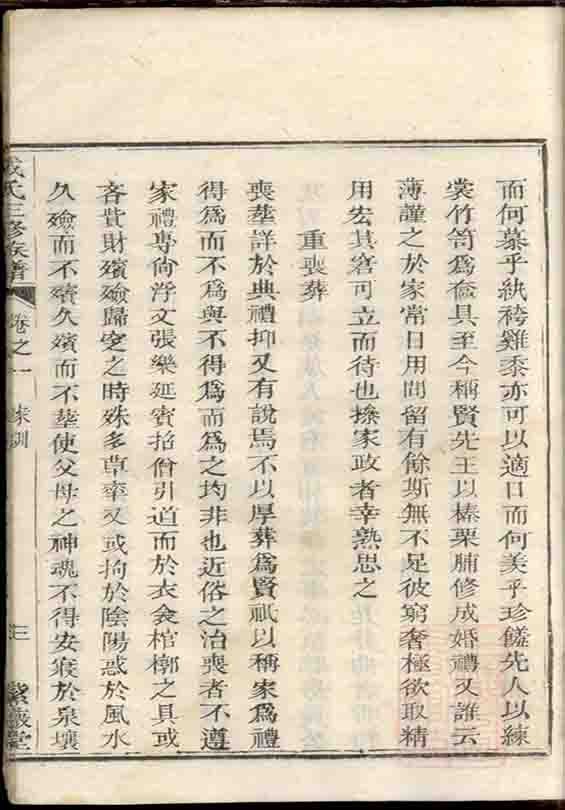 而何慕乎紈袴雞黍亦可以適口而何美乎珍饈先人以練
裳竹笥為奩具至今稱賢先王以榛栗腶修成婚禮又誰云
薄謹之於家常日用間留有餘斯無不足彼窮奢極欲取精
用宏其窘可立而待也操家政者幸熟思之
重喪葬
喪塟詳於典禮抑又有說焉不以厚葬為賢祇以稱家為禮
得為而不為與不得為而為之均非也近俗之治喪者不遵
家禮專尙浮文張樂延賓招僧引道而於衣衾棺槨之具或
吝費財殯殮歸窆之時殊多草率又或拘於陰陽惑於風水
久殮而不殯久殯而不塟使父母之神魂不得安寢於泉壤
成氏三修族譜 卷之一 家訓 三